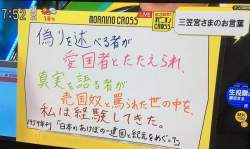 7:52
MORNING CROSS
三笠宮さまのお言葉
偽りを述べる者が
愛国者とたたえられ、
真実を語る者が
売国奴と罵られた世の中を、
私は経験してきた。
1959年刊「日本のあけぼの 建国と紀元をめぐって」